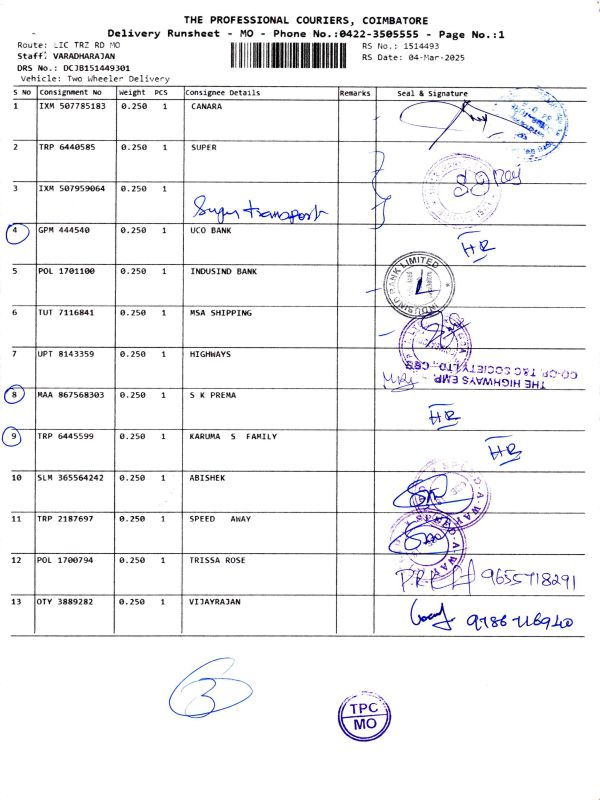 THE PROFESSIONAL COURIERS, COIMBATORE
Delivery Runsheet - MO - Phone No.:0422-3505555 - Page No.:1
Route: LIC TRZ RD MO
RS No.: 1514493
Staff: VARADHARAJAN
RS Date: 04-Mar-2025
DRS No.: DCJB151449301
Vehicle: Two Wheeler Delivery
S No Consignment No Weight PCS Consignee Details Remarks Seal & Signature
1 IXM 507785183 0.250 1 CANARA
2 TRP 6440585 0.250 1 SUPER
3 IXM 507959064 0.250 1
Super transport
4 GPM 444540 0.250 1 UCO BANK
HR
5 POL 1701100 0.250 1 INDUSIND BANK
INDUSIND BANK LIMITED
6 TUT 7116841 0.250 1 MSA SHIPPING
7 UPT 8143359 0.250 1 HIGHWAYS
THE HIGHWAYS EMP.
CO-OP. T&C SOCIETY LTD.,
8 MAA 867568303 0.250 1 S K PREMA
HR
9 TRP 6445599 0.250 1 KARUMA S FAMILY
HR
10 SLM 365564242 0.250 1 ABISHEK
11 TRP 2187697 0.250 1 SPEED AWAY
12 POL 1700794 0.250 1 TRISSA ROSE
9655718291
13 OTY 3889282 0.250 1 VIJAYRAJAN
TPC
MO